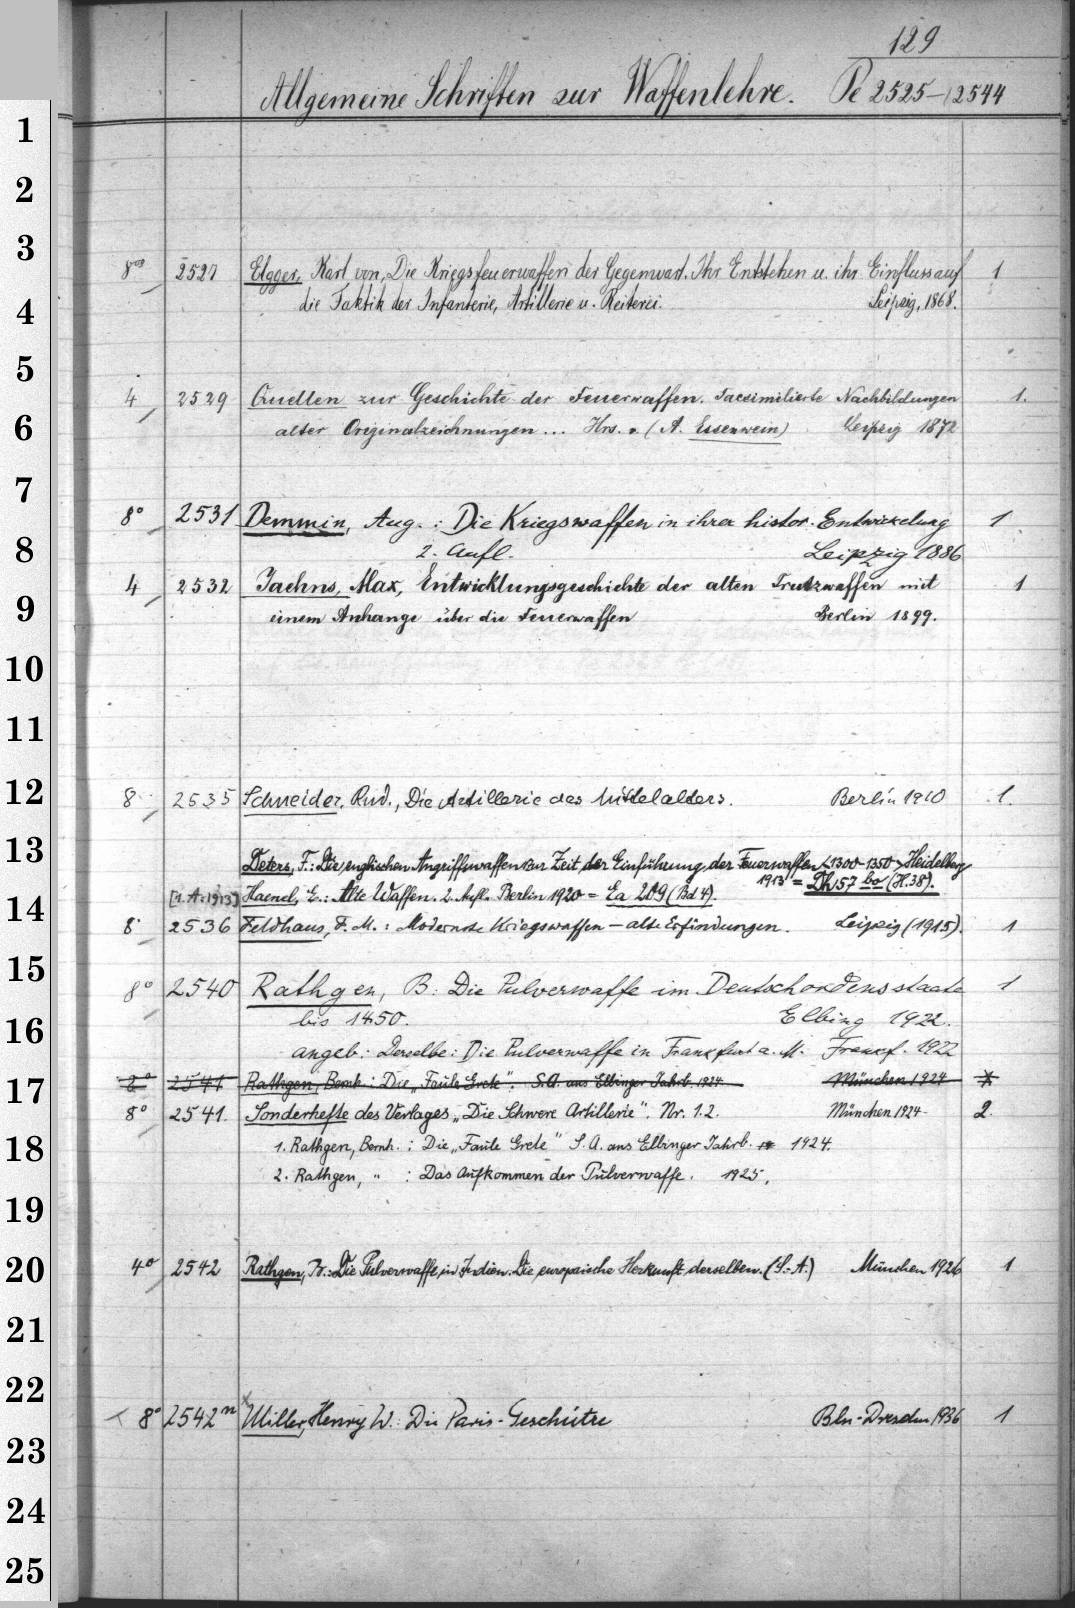 129
Allgemeine Schriften zur Waffenlehre. Pe 2525-2544
1
2
3
8° 2527 Elgger, Karl von, Die Kriegsfeuerwaffen der Gegenwart. Ihr Entstehen u. ihr Einfluss auf 1
4 die Taktik der Infanterie, Artillerie u. Reiterei. Leipzig, 1868.
5
4 2529 Quellen zur Geschichte der Feuerwaffen. Facsimilierte Nachbildungen 1.
6 alter Originalzeichnungen... Hrs. v. (A. Essenwein) Leipzig 1872
7
8° 2531 Demmin, Aug.: Die Kriegswaffen in ihrer histor. Entwickelung 1
8 2. Aufl. Leipzig 1886
4 2532 Jaehns, Max, Entwicklungsgeschichte der alten Trutzwaffen mit 1
9 einem Anhange über die Feuerwaffen Berlin 1899.
10
11
12 8 2535 Schneider, Rud., Die Artillerie des Mittelalters. Berlin 1910 1.
13 Deters, F.: Die englischen Angriffswaffen zur Zeit der Einführung der Feuerwaffen <1300-1350> Heidelberg
1913 = Dh 57 (H.38).
[1.A. 1913] Haenel, E.: Alte Waffen. 2. Aufl. Berlin 1920 = Ea 209 (Bd 4).
14
8° 2536 Feldhaus, F. M.: Modernste Kriegswaffen - alte Erfindungen. Leipzig (1915). 1
15
8° 2540 Rathgen, B: Die Pulverwaffe im Deutschordensstaate 1
16 bis 1450. Elbing 1922.
angeb.: Derselbe: Die Pulverwaffe in Frankfurt a. M. Frankf. 1922
17 8° 2541 Rathgen, Bernh.: Die „Faule Grete". S.A. aus Elbinger Jahrb. 1924 München 1924
8° 2541. Sonderhefte des Verlages „Die Schwere Artillerie". Nr. 1.2. München 1924- 2.
18 1. Rathgen, Bernh.: Die „Faule Grete" S.A. aus Elbinger Jahrb. 1924.
2. Rathgen, " : Das Aufkommen der Pulverwaffe. 1925.
19
20 4° 2542 Rathgen, B.: Die Pulverwaffe in Indien. Die europäische Herkunft derselben. (S.-A.) München 1926 1
21
22
8° 2542n Miller, Henry W.: Die Paris-Geschütze Bln-Dresden 1936 1
23
24
25